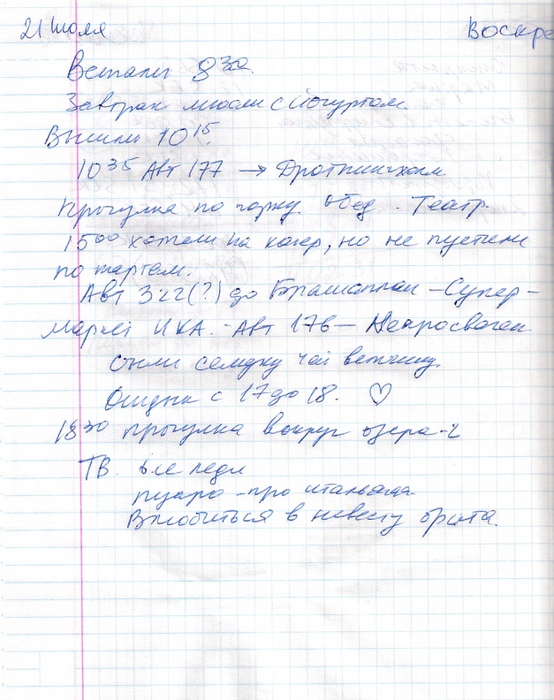 21 Июля Воскре
Встали 8 30
Завтрак мюсли с йогуртом
Вышли 10 15.
10 35 Авт 177 → Дроттнингхольм
Прогулка по парку обед. Театр.
15 00 хотели на концерт, но не пустили
по партам.
Авт 322(?) до Броммаплан – Супер-
маркет ИКА. – Авт 176 –
Съели селедку чай ветчину.
Отдых с 17 до 18. ♡
18 30 прогулка вокруг озера-2
ТВ. все леди
пуаро – про итальянца
Влюбиться в невесту брата.